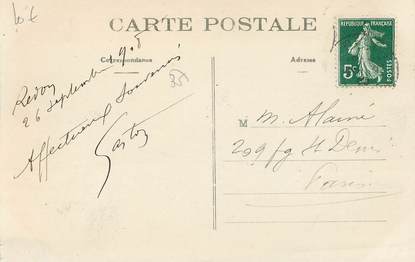 CARTE POSTALE
Correspondance
Adresse
RÉPUBLIQUE FRANÇAISE
5c
POSTES
Redon
26 Septembre 908
Affectueux Souvenirs
Gaston
M M. Alainé
209 fg St Denis
Paris